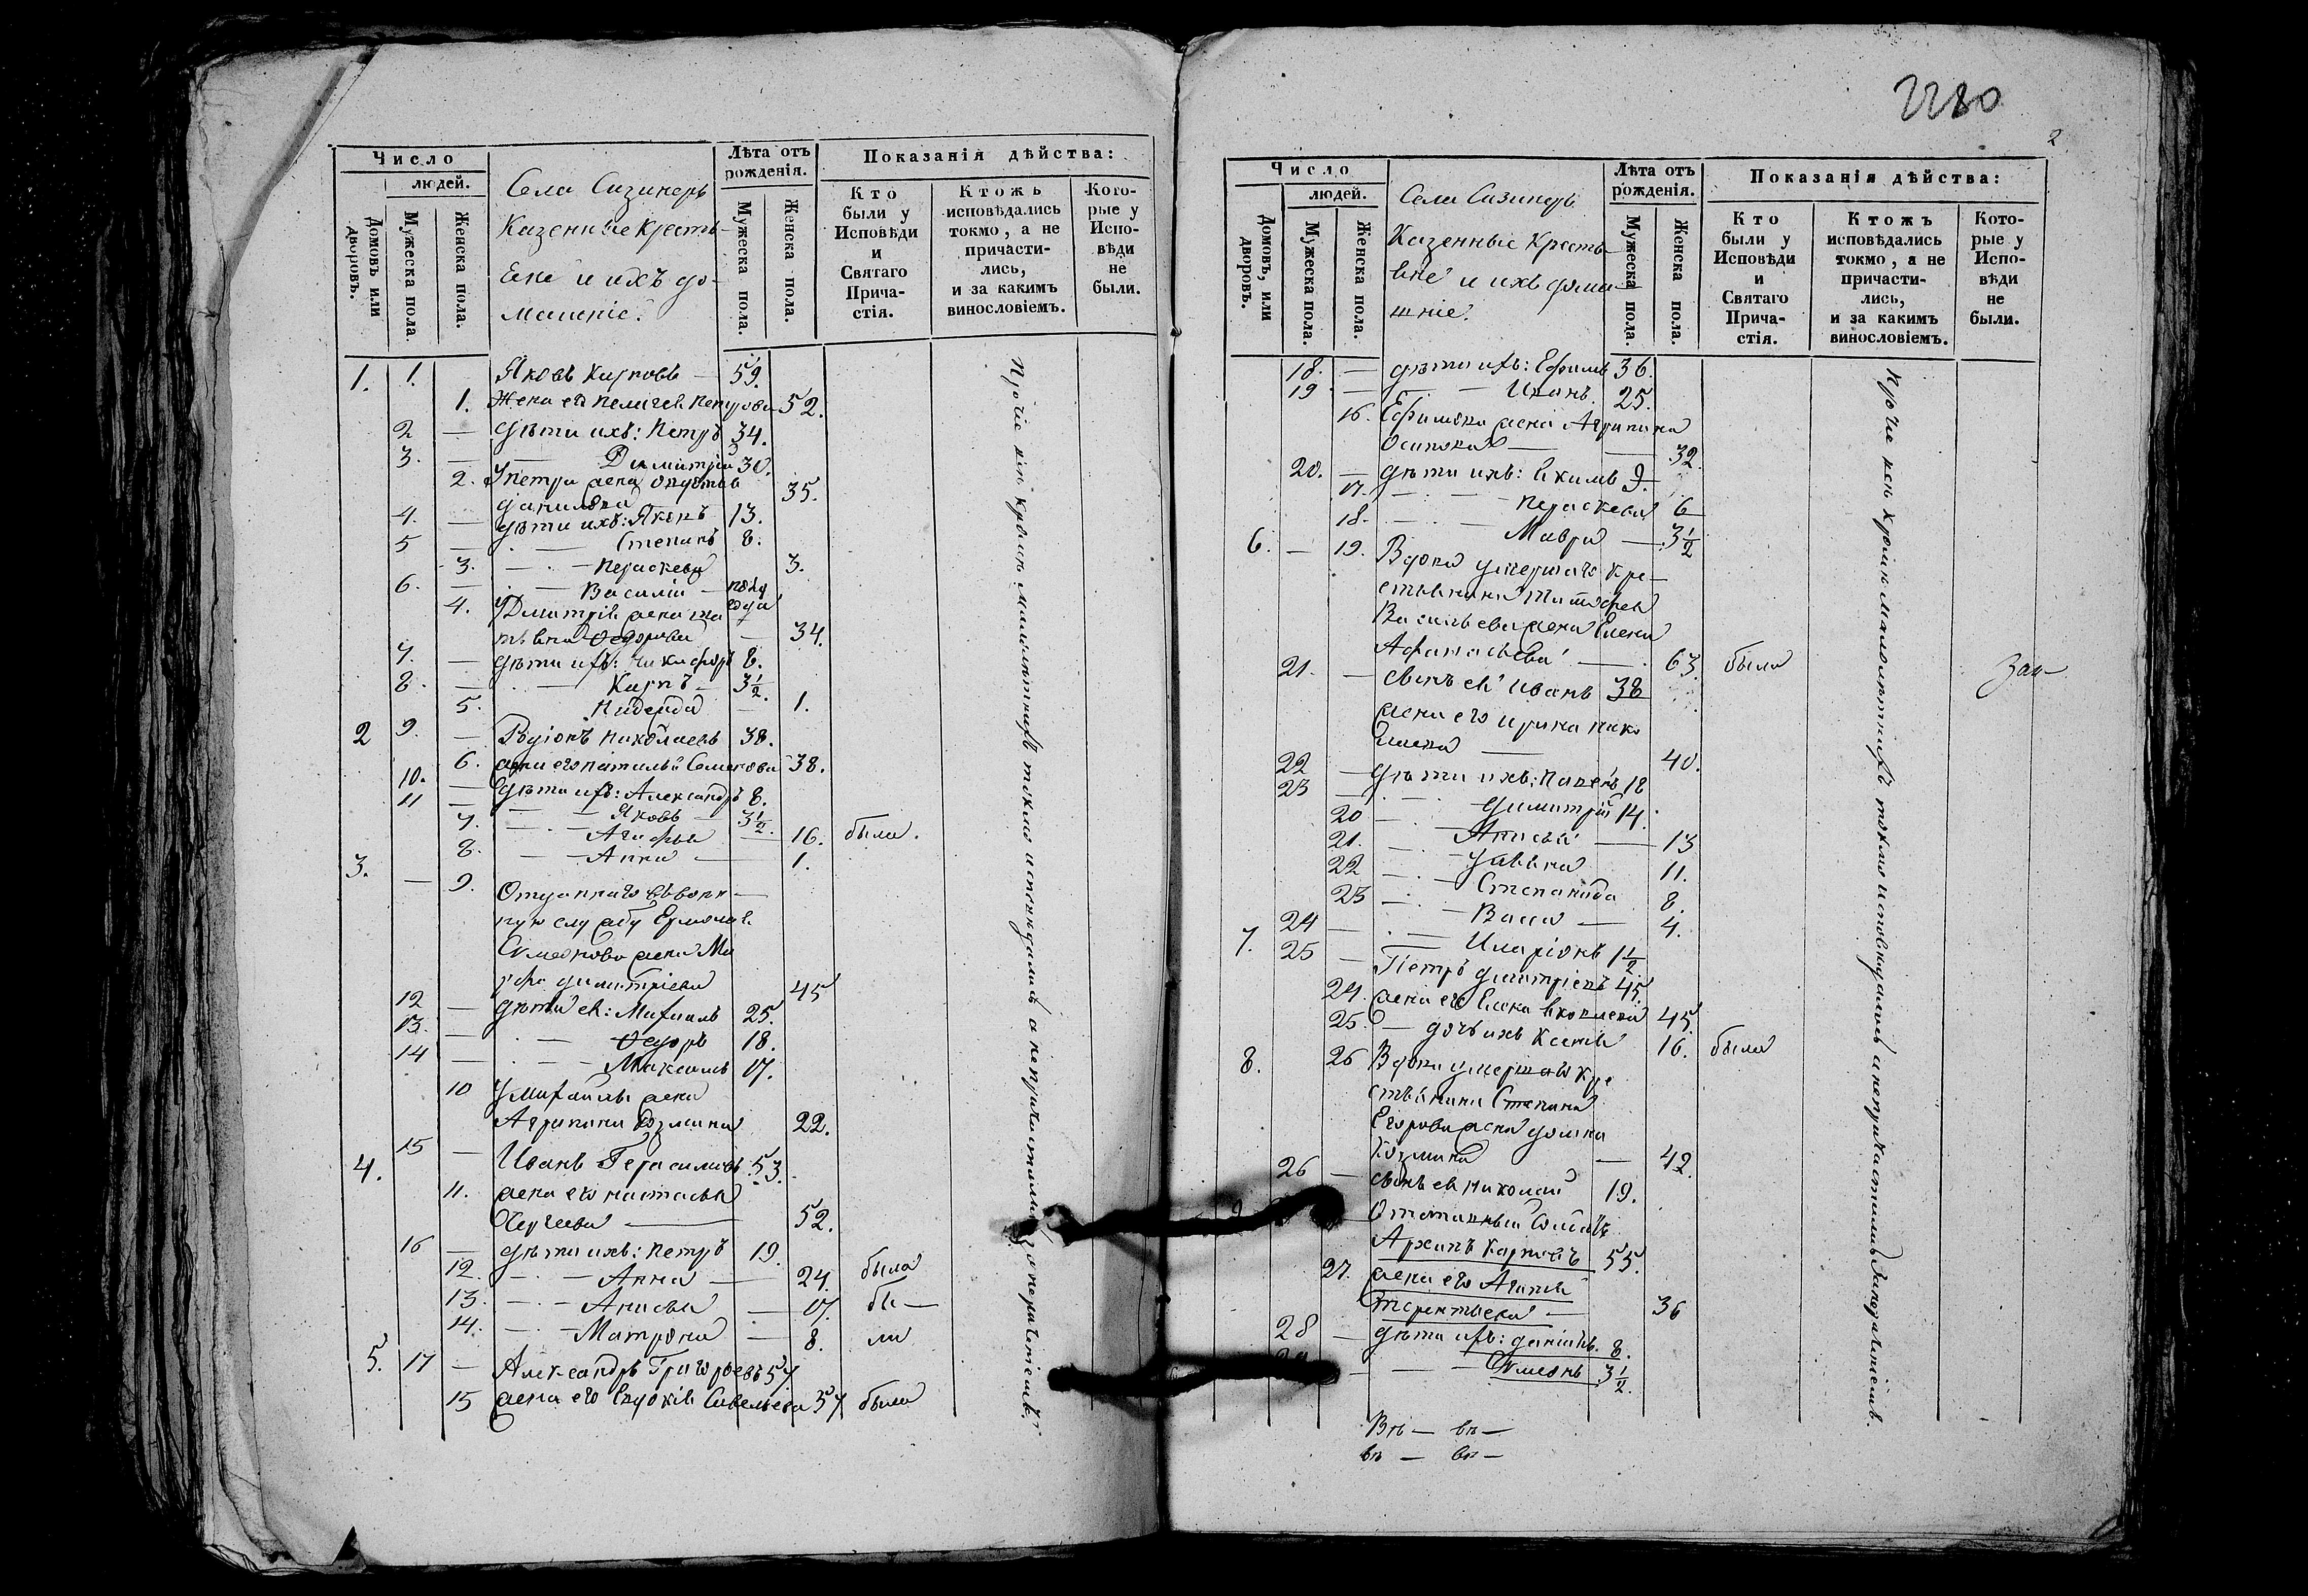 Число
людей.
Домовъ или дворовъ.
Мужеска пола.
Женска пола.
Села Сизинеръ
Казенные Кресть-
яне и ихъ до-
машніе.
Лѣта отъ рожденія.
Мужеска пола.
Женска пола.
Показанія дѣйства:
Кто были у Исповѣди и Святаго Прича-стія.
Ктожъ исповѣдались токмо, а не причасти-лись, и за какимъ винословіемъ.
Кото-рые у Испо-вѣди не были.
1. 1. Яковъ Карповъ — 59.
1. Жена его Пелагея Петрова 52.
2 — дѣти ихъ: Петръ 34.
3. — Димитрій 30.
2. У Петра жена
Данилова 35.
4. — дѣти ихъ: Яковъ 13.
5 — Степанъ 8.
3. — Параскева 3.
6. — Василій — полу
года
4. У Димитрія жена Та
тьяна Ѳедорова — 34.
7. — дѣти ихъ: Никифоръ 8.
8. — Карпъ — 3 1/2.
5. Надежда — 1.
2 9. — Родіонъ Николаевъ 38.
6. жена его Наталья Семенова 38.
10. — дѣти ихъ: Александръ 8.
11 — Яковъ — 3 1/2.
7. — Агафья — 16. была.
8. — Анна — 1.
3. — 9. Отданнаго въ воен—
ную службу Ермолая
Симеонова жена Ма
рфа Димитріева 45
12 — дѣти ея: Михаилъ 25.
13. — Ѳедоръ 18.
14 — Максимъ 17.
10 У Михаила жена
Агрипина Козмина 22.
4. 15 — Иванъ Герасимовъ 53.
11. жена его Настасья
Сергеева — 52.
16 — дѣти ихъ: Петръ 19.
12. — Анна — 24. была
13. — Анисья — 17. бы—
14. — Матрона — 8. ли
5. 17 — Александръ Григорьевъ 57
15 жена его Евдокія Савельева 57 была
Прочіе всѣ кромѣ малолѣтнихъ токмо исповѣдались а не причастились за нераченіемъ.
2280
2
Число
людей.
Домовъ, или дворовъ.
Мужеска пола.
Женска пола.
Села Сизинеръ
Казенные Кресть-
яне и ихъ дома-
шніе.
Лѣта отъ рожденія.
Мужеска пола.
Женска пола.
Показанія дѣйства:
Кто были у Исповѣди и Святаго Прича-стія.
Ктожъ исповѣдались токмо, а не причасти-лись, и за какимъ винословіемъ.
Кото-рые у Испо-вѣди не были.
18. — дѣти ихъ: Ефимъ 36.
19 — Иванъ. 25.
16. Ефимова жена Агрипина
Осипова — 32.
20. — дѣти ихъ: Екимъ 9.
17. — Параскева 6
18. — Мавра — 3 1/2
6. — 19. Вдова умершаго кре—
стьянина Тимофея
Васильева жена Елена
Афанасьева — 63. была
21. — сынъ ея Иванъ 38
жена его Ирина Нико
лаева — 40.
22 — дѣти ихъ: Павелъ 18
23 — Димитрій 14.
20 — Анисья — 13
21. — Ульяна 11.
22 — Степанида 8.
23 — Васса — 4.
24 — Иларіонъ 1 1/2
7. 25 — Петръ Димитріевъ 45.
24. жена его Елена Яковлева 45.
25. — дочь ихъ Ксенія 16. была
8. 26 Вдова умершаго кре
стьянина Степана
Егорова жена Домна
Козмина — 42.
26 — сынъ ея Николай 19.
9 Отставный солдатъ
Архипъ Карповъ 55.
27. жена его Агафья
Терентьева — 36
28 — дѣти ихъ: Даніилъ. 8.
29 — Симеонъ 3 1/2.
Прочіе всѣ кромѣ малолѣтнихъ токмо исповѣдались а не причастились за нераченіемъ.